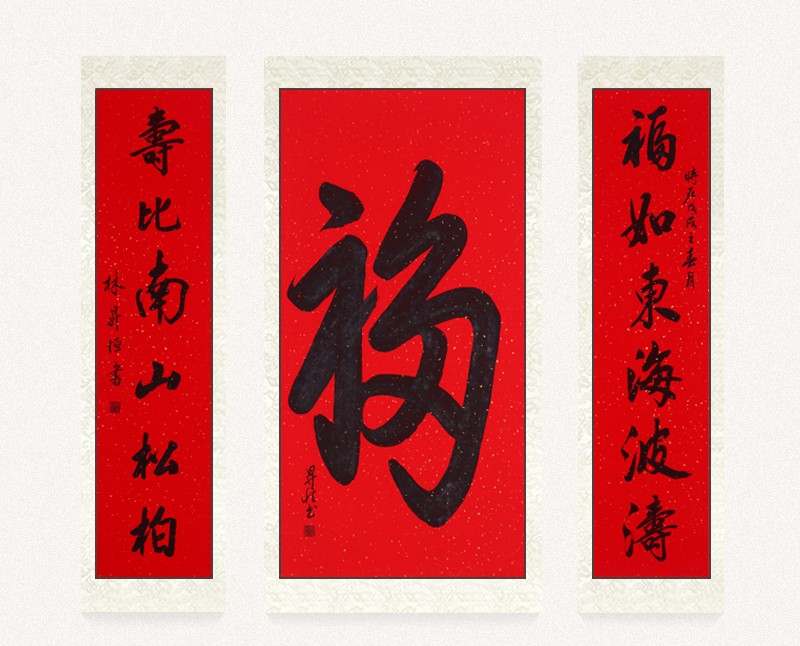 福如東海波濤
時在戊戌之春月
福
昇恒书
壽比南山松柏
林昇恒書